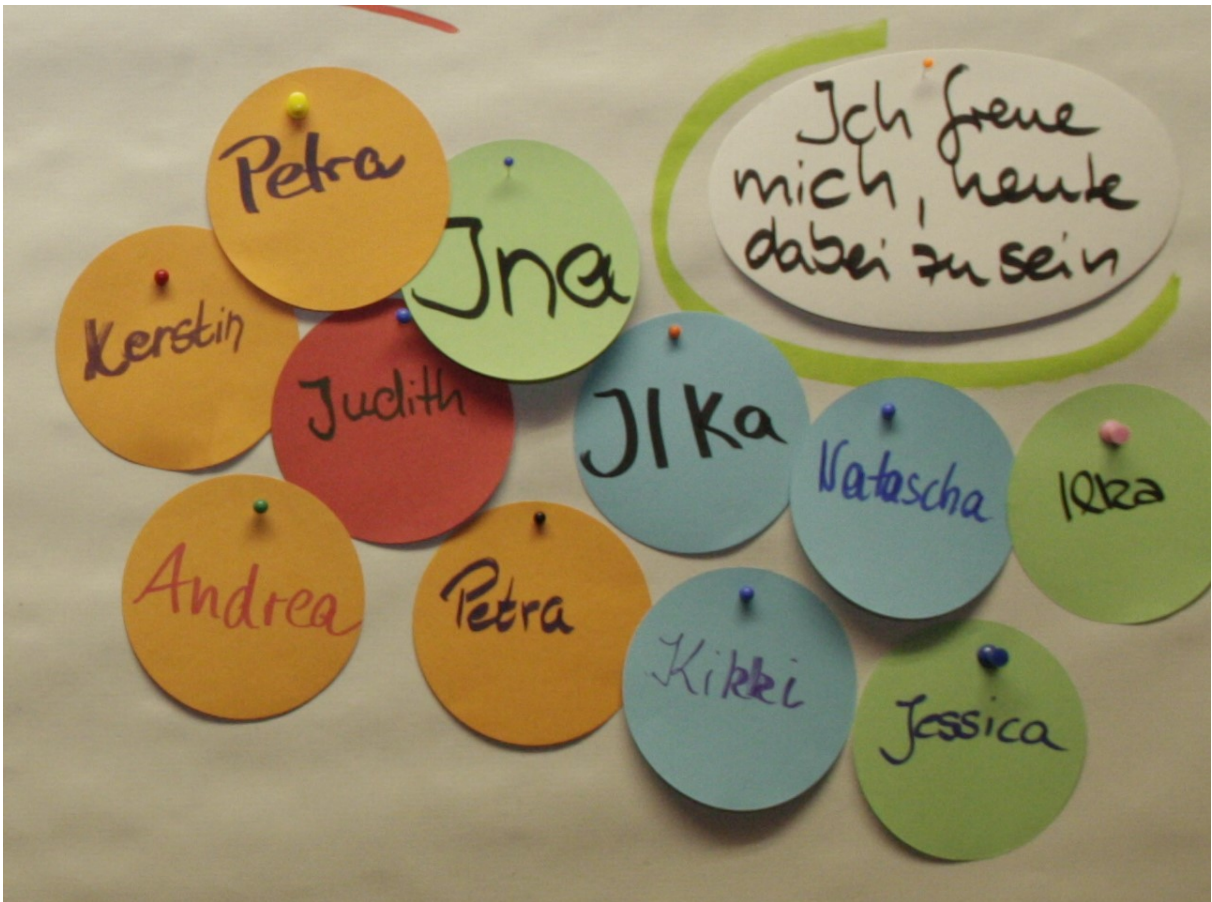 Ich freue
mich, heute
dabei zu sein
Petra
Jna
Kerstin
Judith
JlKa
Natascha
Ilka
Andrea
Petra
Kikki
Jessica